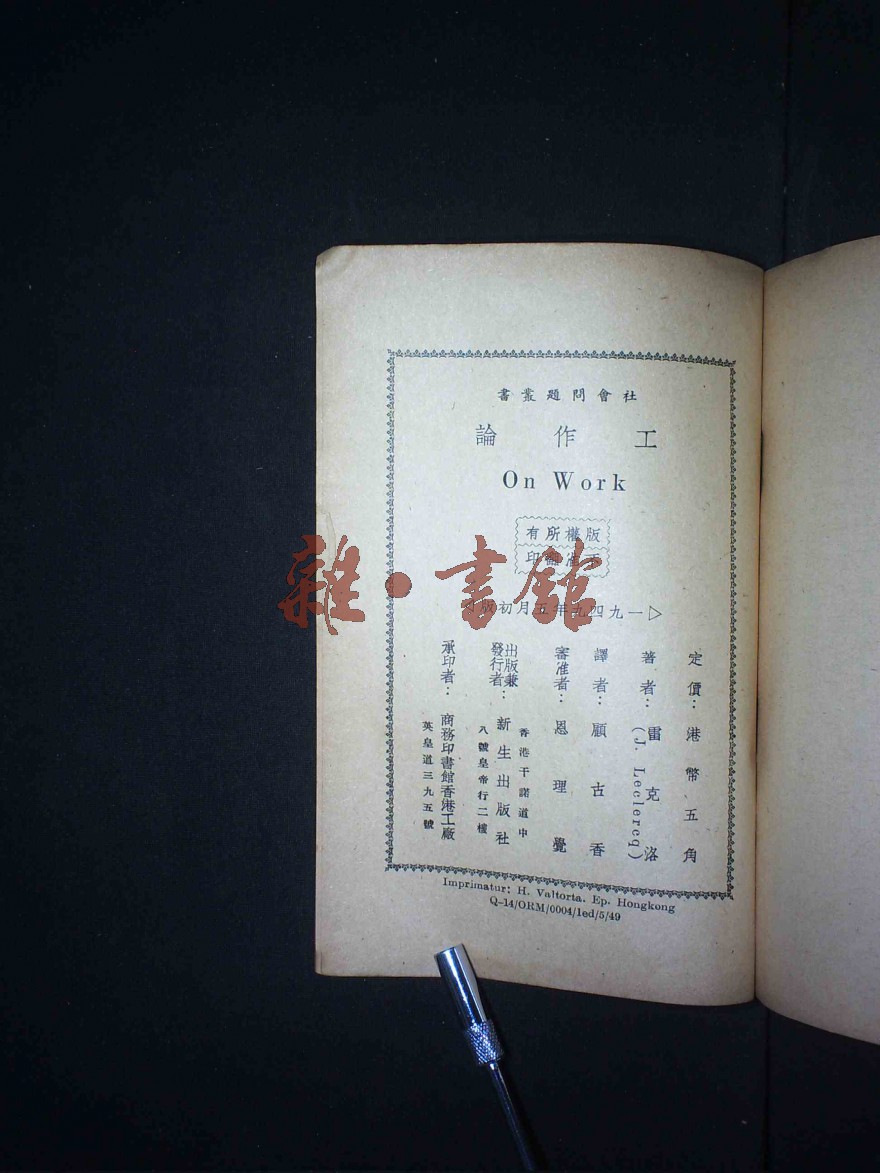 社會問題叢書
工作論
On Work
版權所有
不准翻印
▷一九四九年五月初版
定價：港幣五角
著者：雷克洛
(J. Leclercq)
譯者：顧古香
審准者：恩理覺
出版兼發行者：新生出版社
香港干諾道中
八號皇帝行二樓
承印者：商務印書館香港工廠
英皇道三九五號
Imprimatur: H. Valtorta. Ep. Hongkong
Q-14/ORM/0004/1ed/5/49
雜·書館